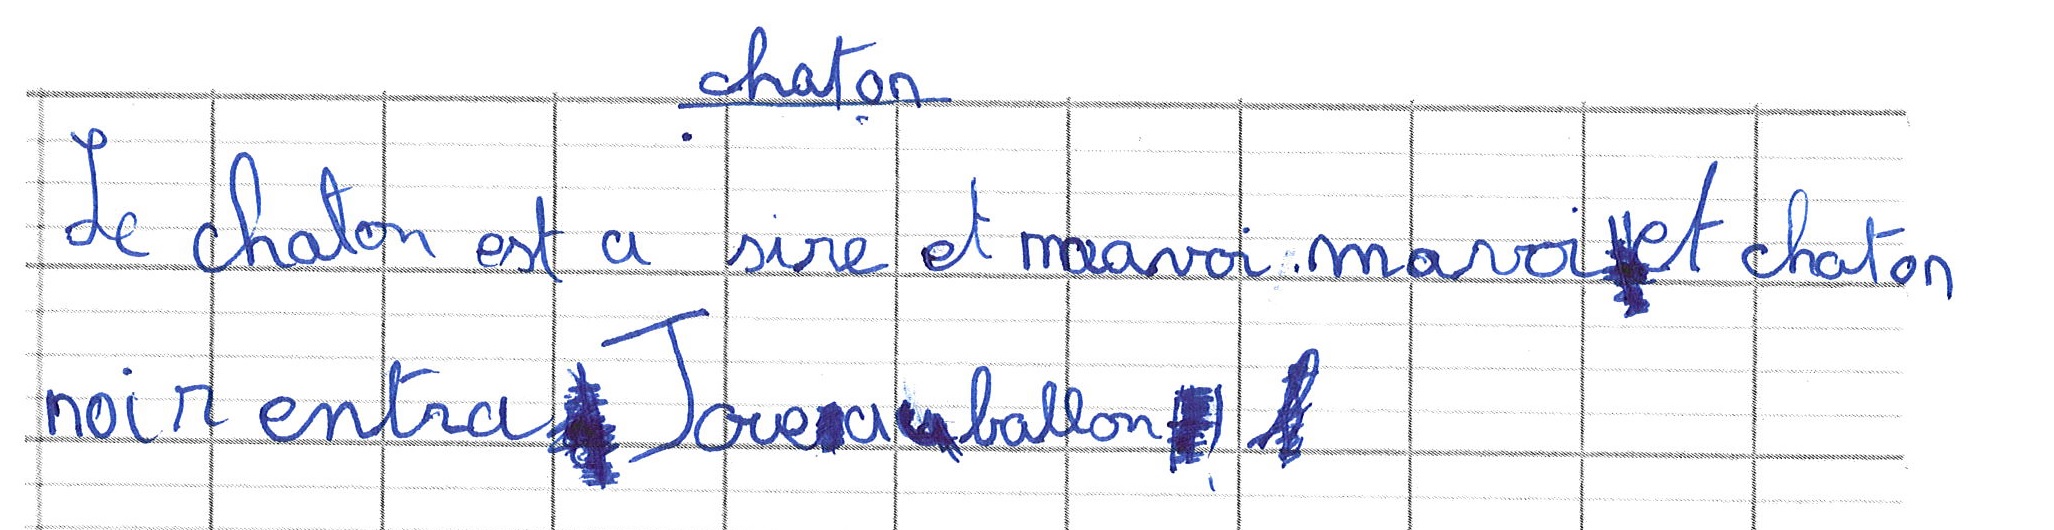 chaton
Le chaton est a sire et maavoi. mavoi et chaton
noir entra Joue au ballon